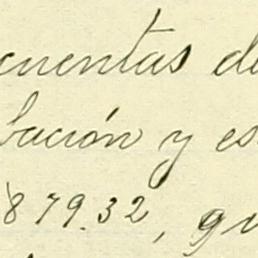 cuentas de
bación y es
1879.32, qu